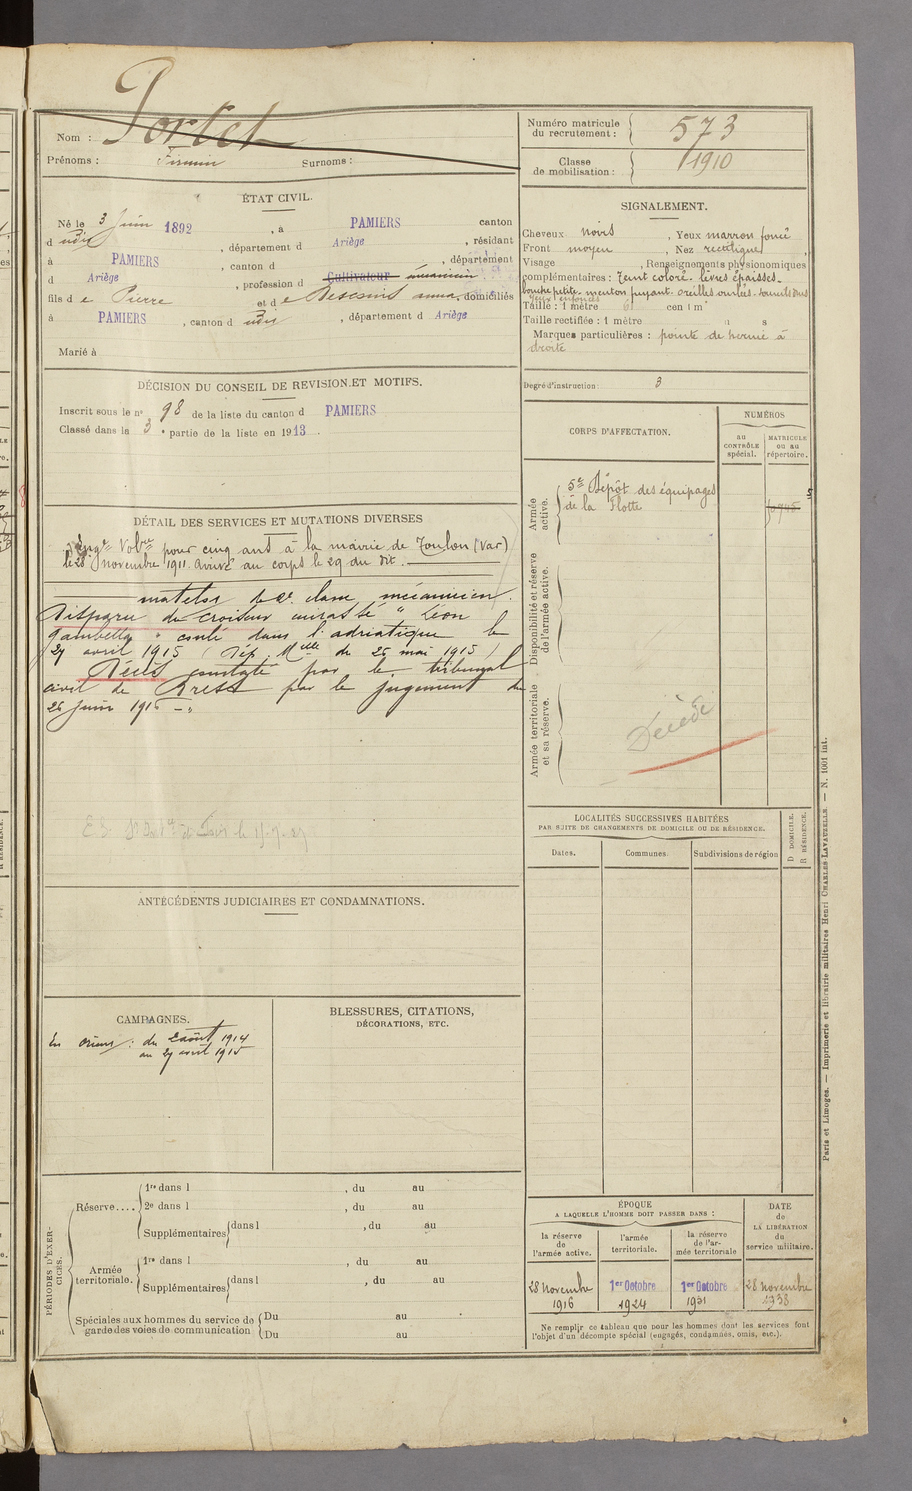 Nom : Portet
Prénoms : Firmin Surnoms :
Numéro matricule du recrutement : 573
Classe de mobilisation : 1910
ÉTAT CIVIL.
Né le 3 Juin 1892, à PAMIERS canton
d udit, département d Ariège, résidant
à PAMIERS, canton d, département
d Ariège, profession d Cultivateur mécanicien
fils de Pierre et de anna, domiciliés
à PAMIERS, canton d udit, département d Ariège
Marié à
SIGNALEMENT.
Cheveux noirs, Yeux marron foncé
Front moyen, Nez rectiligne
Visage, Renseignements physionomiques
complémentaires : Teint coloré. lèvres épaisses.
bouche petite. menton fuyant. oreilles ourlées.
yeux enfoncés
Taille : 1 mètre 61 centim
Taille rectifiée : 1 mètre
Marques particulières : pointe de hernie à
droite
Degré d'instruction : 3
DÉCISION DU CONSEIL DE REVISION ET MOTIFS.
Inscrit sous le n° 98 de la liste du canton d PAMIERS
Classé dans la 3e partie de la liste en 1913.
CORPS D'AFFECTATION.
NUMÉROS
au CONTRÔLE spécial.
MATRICULE ou au répertoire.
Armée active.
5e Dépôt des équipages
de la Flotte
Disponibilité et réserve de l'armée active.
Armée territoriale et sa réserve.
Décédé
DÉTAIL DES SERVICES ET MUTATIONS DIVERSES
Engé Volre pour cinq ans à la mairie de Toulon (Var)
le 28 novembre 1911. arrivé au corps le 29 du dit.
matelot de 2e classe mécanicien.
Disparu du croiseur cuirassé " Léon
Gambetta " coulé dans l'adriatique le
27 avril 1915 (Dép. Mlle du 25 mai 1915)
Décès constaté par le tribunal
civil de Brest par le jugement du
26 juin 1916
LOCALITÉS SUCCESSIVES HABITÉES
PAR SUITE DE CHANGEMENTS DE DOMICILE OU DE RÉSIDENCE.
Dates.
Communes.
Subdivisions de région
D DOMICILE.
R RÉSIDENCE.
ANTÉCÉDENTS JUDICIAIRES ET CONDAMNATIONS.
CAMPAGNES.
En Orient : du 2 août 1914
au 27 avril 1915
BLESSURES, CITATIONS,
DÉCORATIONS, ETC.
PÉRIODES D'EXERCICES.
Réserve....
1re dans l, du au
2e dans l, du au
Supplémentaires dans l, du au
Armée territoriale.
1re dans l, du au
Supplémentaires dans l, du au
Spéciales aux hommes du service de
garde des voies de communication
Du au
Du au
ÉPOQUE
A LAQUELLE L'HOMME DOIT PASSER DANS :
la réserve de l'armée active.
l'armée territoriale.
la réserve de l'armée territoriale
DATE de LA LIBÉRATION du service militaire.
28 Novembre 1916
1er Octobre 1924
1er Octobre 1931
28 novembre 1938
Ne remplir ce tableau que pour les hommes dont les services font
l'objet d'un décompte spécial (engagés, condamnés, omis, etc.).
Paris et Limoges. — Imprimerie et librairie militaires Henri CHARLES-LAVAUZELLE. — N. 1061 int.